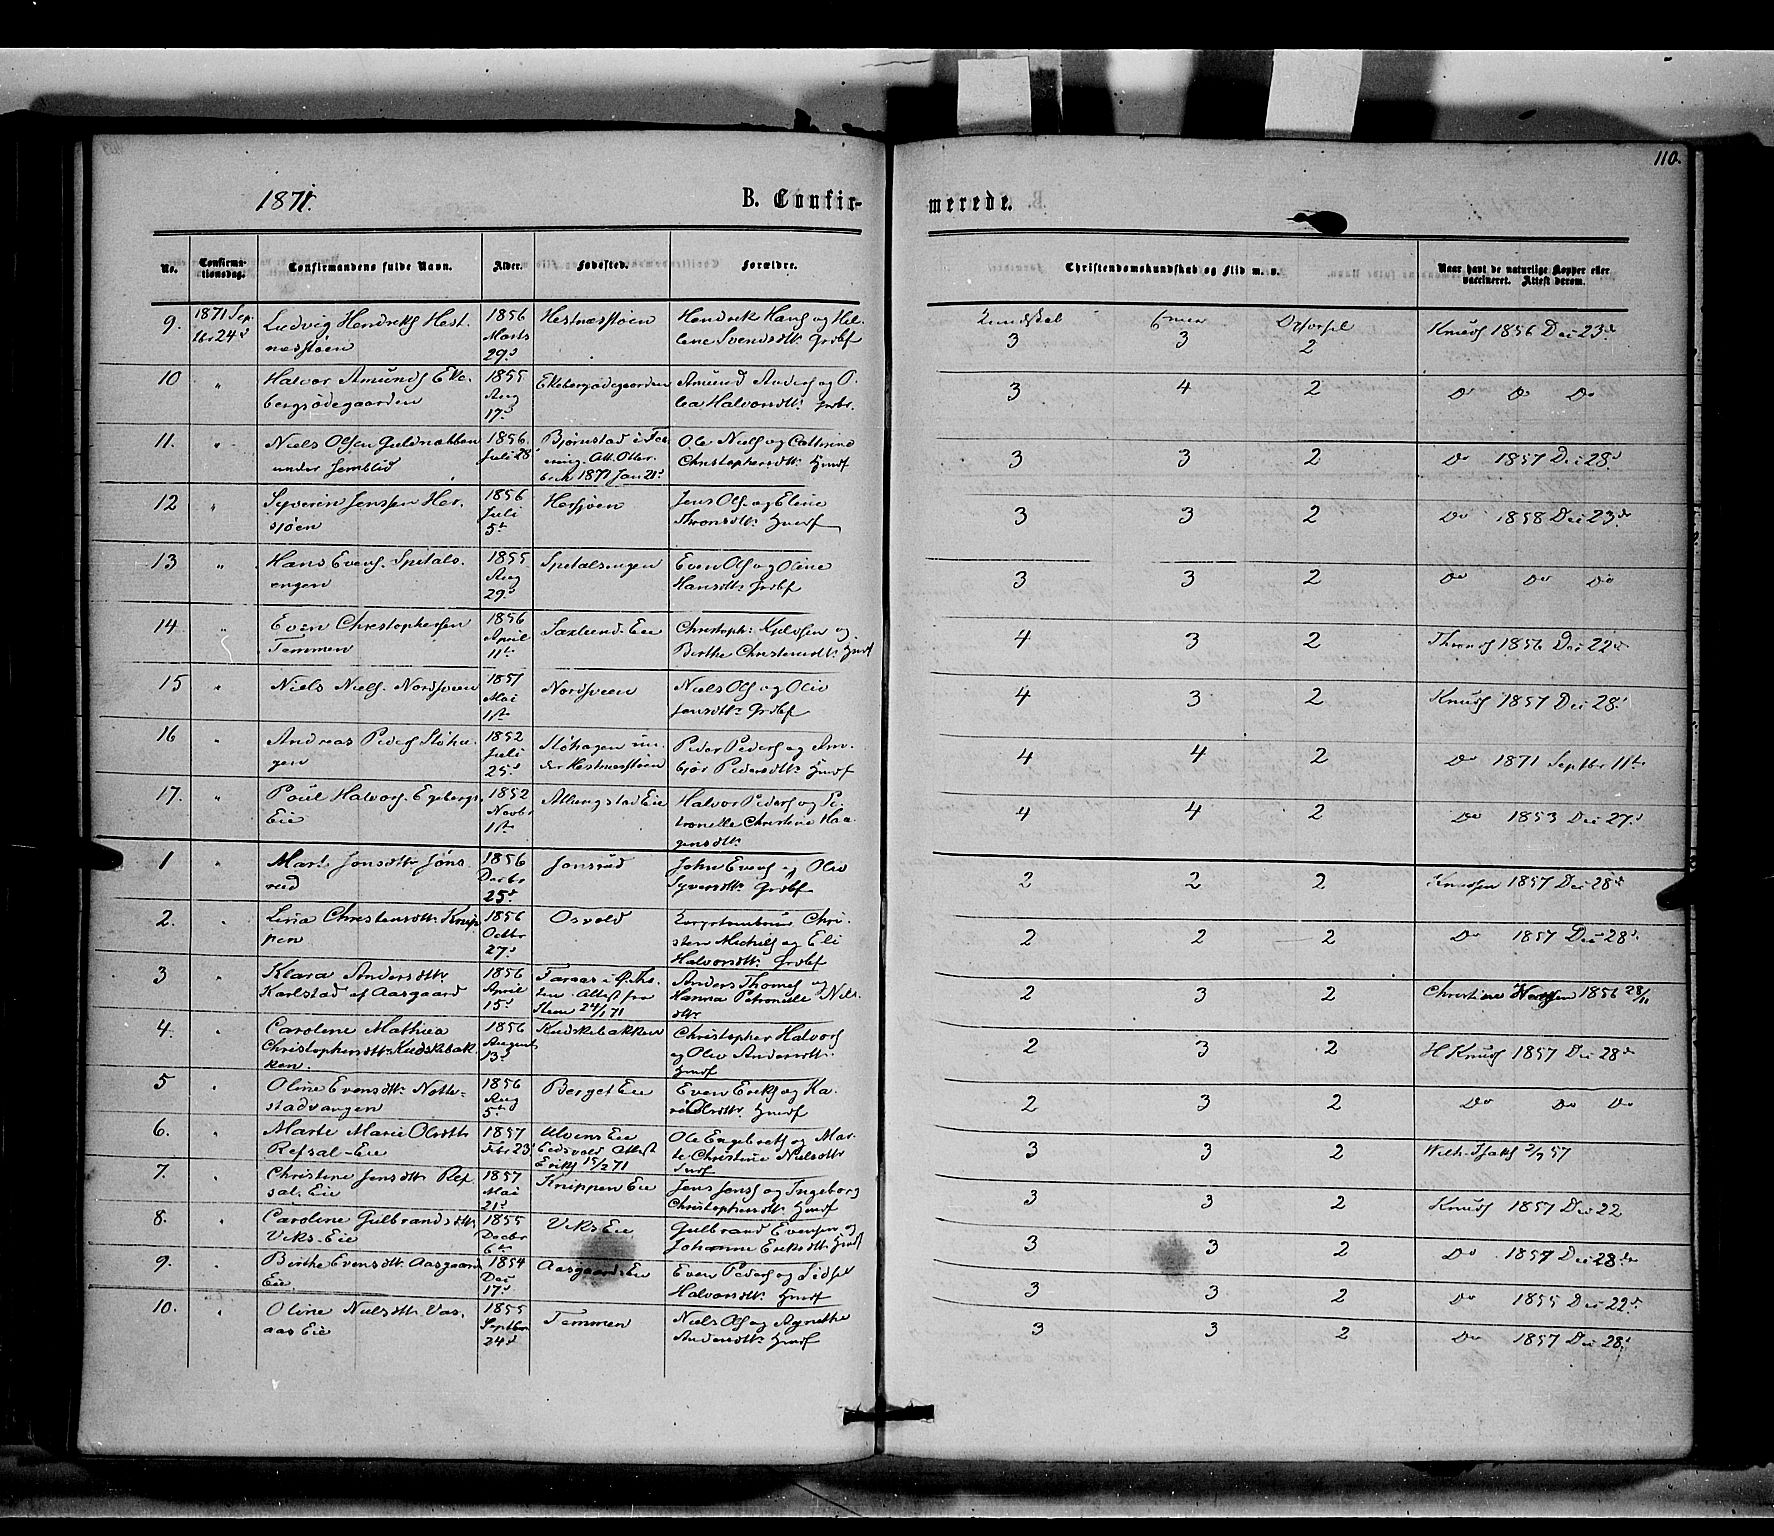 110.
1871.
B. Confirmerede.
No. Confirmationsdag. Confirmandens fulde Navn. Alder. Fødested. Forældre. Christendomskundskab og Flid m. v. Naar havt de naturlige Kopper eller vaccineret. Attest derom.
9. 1871 Septbr 24d Ludvig Hendriks. Hestnæsstøen 1856 Marts 29d Hestnæsstøen Hendrik Hans. og Helene Svendsdtr. Grdbf Kundskab 3 Evner 3 Opførsel 2 Knuds 1856 Dec 23d
10 " Halvor Amunds. Ekebergsødegaarden 1855 Aug 17d Ekebergsødegaarden Amund Anders. og Olea Halvorsdtr. Grdbr. 3 4 2 Do Do Do
11. " Niels Olsen Guldnakken under Jemblid 1856. Juli 28 Bjørnstad i Att. 1871 Jan 21d Ole Niels. og Cathrine Christophersdtr. Hmdf 3 3 2 Do 1857 Dec 28d
12 " Syverin Jensen Hersjøen 1856 Juli 5te Hersjøen Jens Ols. og Eline Thronsdtr. Hmdf 3 3 2 Do 1858 Dec 23de
13 " Hans Evens. Spetalsengen 1855 Aug 29d Spetalsengen Even Ols. og Oline Hansdtr. Grdbf 3 3 2 Do Do Do
14 " Even Christophersen Temmen 1856 April 11te Saxlund-Eie Christoph: og Birthe Christensdtr. Hmdf 4 3 2 Throns. 1856 Dec 22d
15 " Niels Niels. Nordsveen 1857 Mai 1ste Nordsveen Niels Ols. og Oliv Jensdtr. Grdbf 4 3 2 Knuds 1857 Dec 28d
16 " Andreas Peders. Støhagen 1852 Juli 25d Støhagen under Hestnæsstøen Peder Peders. og Ambjør Pedersdtr. Hmdf 4 4 2 Do 1871 Septbr 11te
17. " Poul Halvors. Egebergs Eie 1852 Novbr 1ste Allungstad Eie Halvor Peders. og Petronelle Christine Haagensdtr. 4 4 2 Do 1853 Dec 27d
1 " Marte Jonsdtr Jønsrud 1856 Decbr 25d Jonsrud John Evens. og Oliv Syversdtr. Grdbf 2 2 2 Knudsen 1857 Dec 28d
2. " Lina Christensdtr. Knippen 1856 Octbr 27d Osvold Christen Michels. og Eli Halvorsdtr. Grdbf 2 2 2 Do 1857 Dec 28d
3 " Klara Andersdtr. Karlstad af Aasgaard 1856 April 15d Taraas i Ø. Attest fra 24/1 71 Anders Thomes. og Hanna Petronelle Nielsdtr. 2 3 2 Christine 1856 28/11
4. " Caroline Mathea Christophersdtr. Kudskebakken. 1856 August 13d Kudskebakken Christopher Halvors. og Oliv Andersdtr. Hmdf 2 3 2 H Knuds 1857 Dec 28d
5 " Oline Evensdtr. Nottestadvangen 1856 Aug 5te Berget Eie Even Eriks. og Kari Olsdtr. Hmdf 2 3 2 Do Do Do
6. " Marte Marie Olsdtr Refsal-Eie 1857 Febr 23d Ulvens Eie Eidsvold, Attest Eriks. 15/2 71 Ole Engebrets. og Marte Christine Nielsdtr Hmdf 3 3 2 Wilh. Isaks. 2/7 57
7. " Christine Jensdtr. Refsal. Eie 1857 Mai 21d Knippen Eie Jens Jens. og Ingeborg Christophersdtr. Hmdf 3 3 2 Knuds 1857 Dec 22
8. " Caroline Gulbrandsdtr. Viks-Eie 1855 Decbr 6te Viks Eie Gulbrand Evensen og Johanne Eriksdtr. Hmdf 3 3 2 Do 1857 Dec 28de
9. " Birthe Evensdtr. Aasgaard Eie 1854 Dec 17d Aasgaard. Eie Even Peders. og Sidsel Halvorsdtr. Hmdf 3 3 2 Do 1855 Dec 22d
10. " Oline Nielsdtr. Vasaas Eie 1855 Septbr 24d Temmen Niels Ols. og Agnethe Andersdtr. Hmdf 3 3 2 Do 1857 Dec 28d